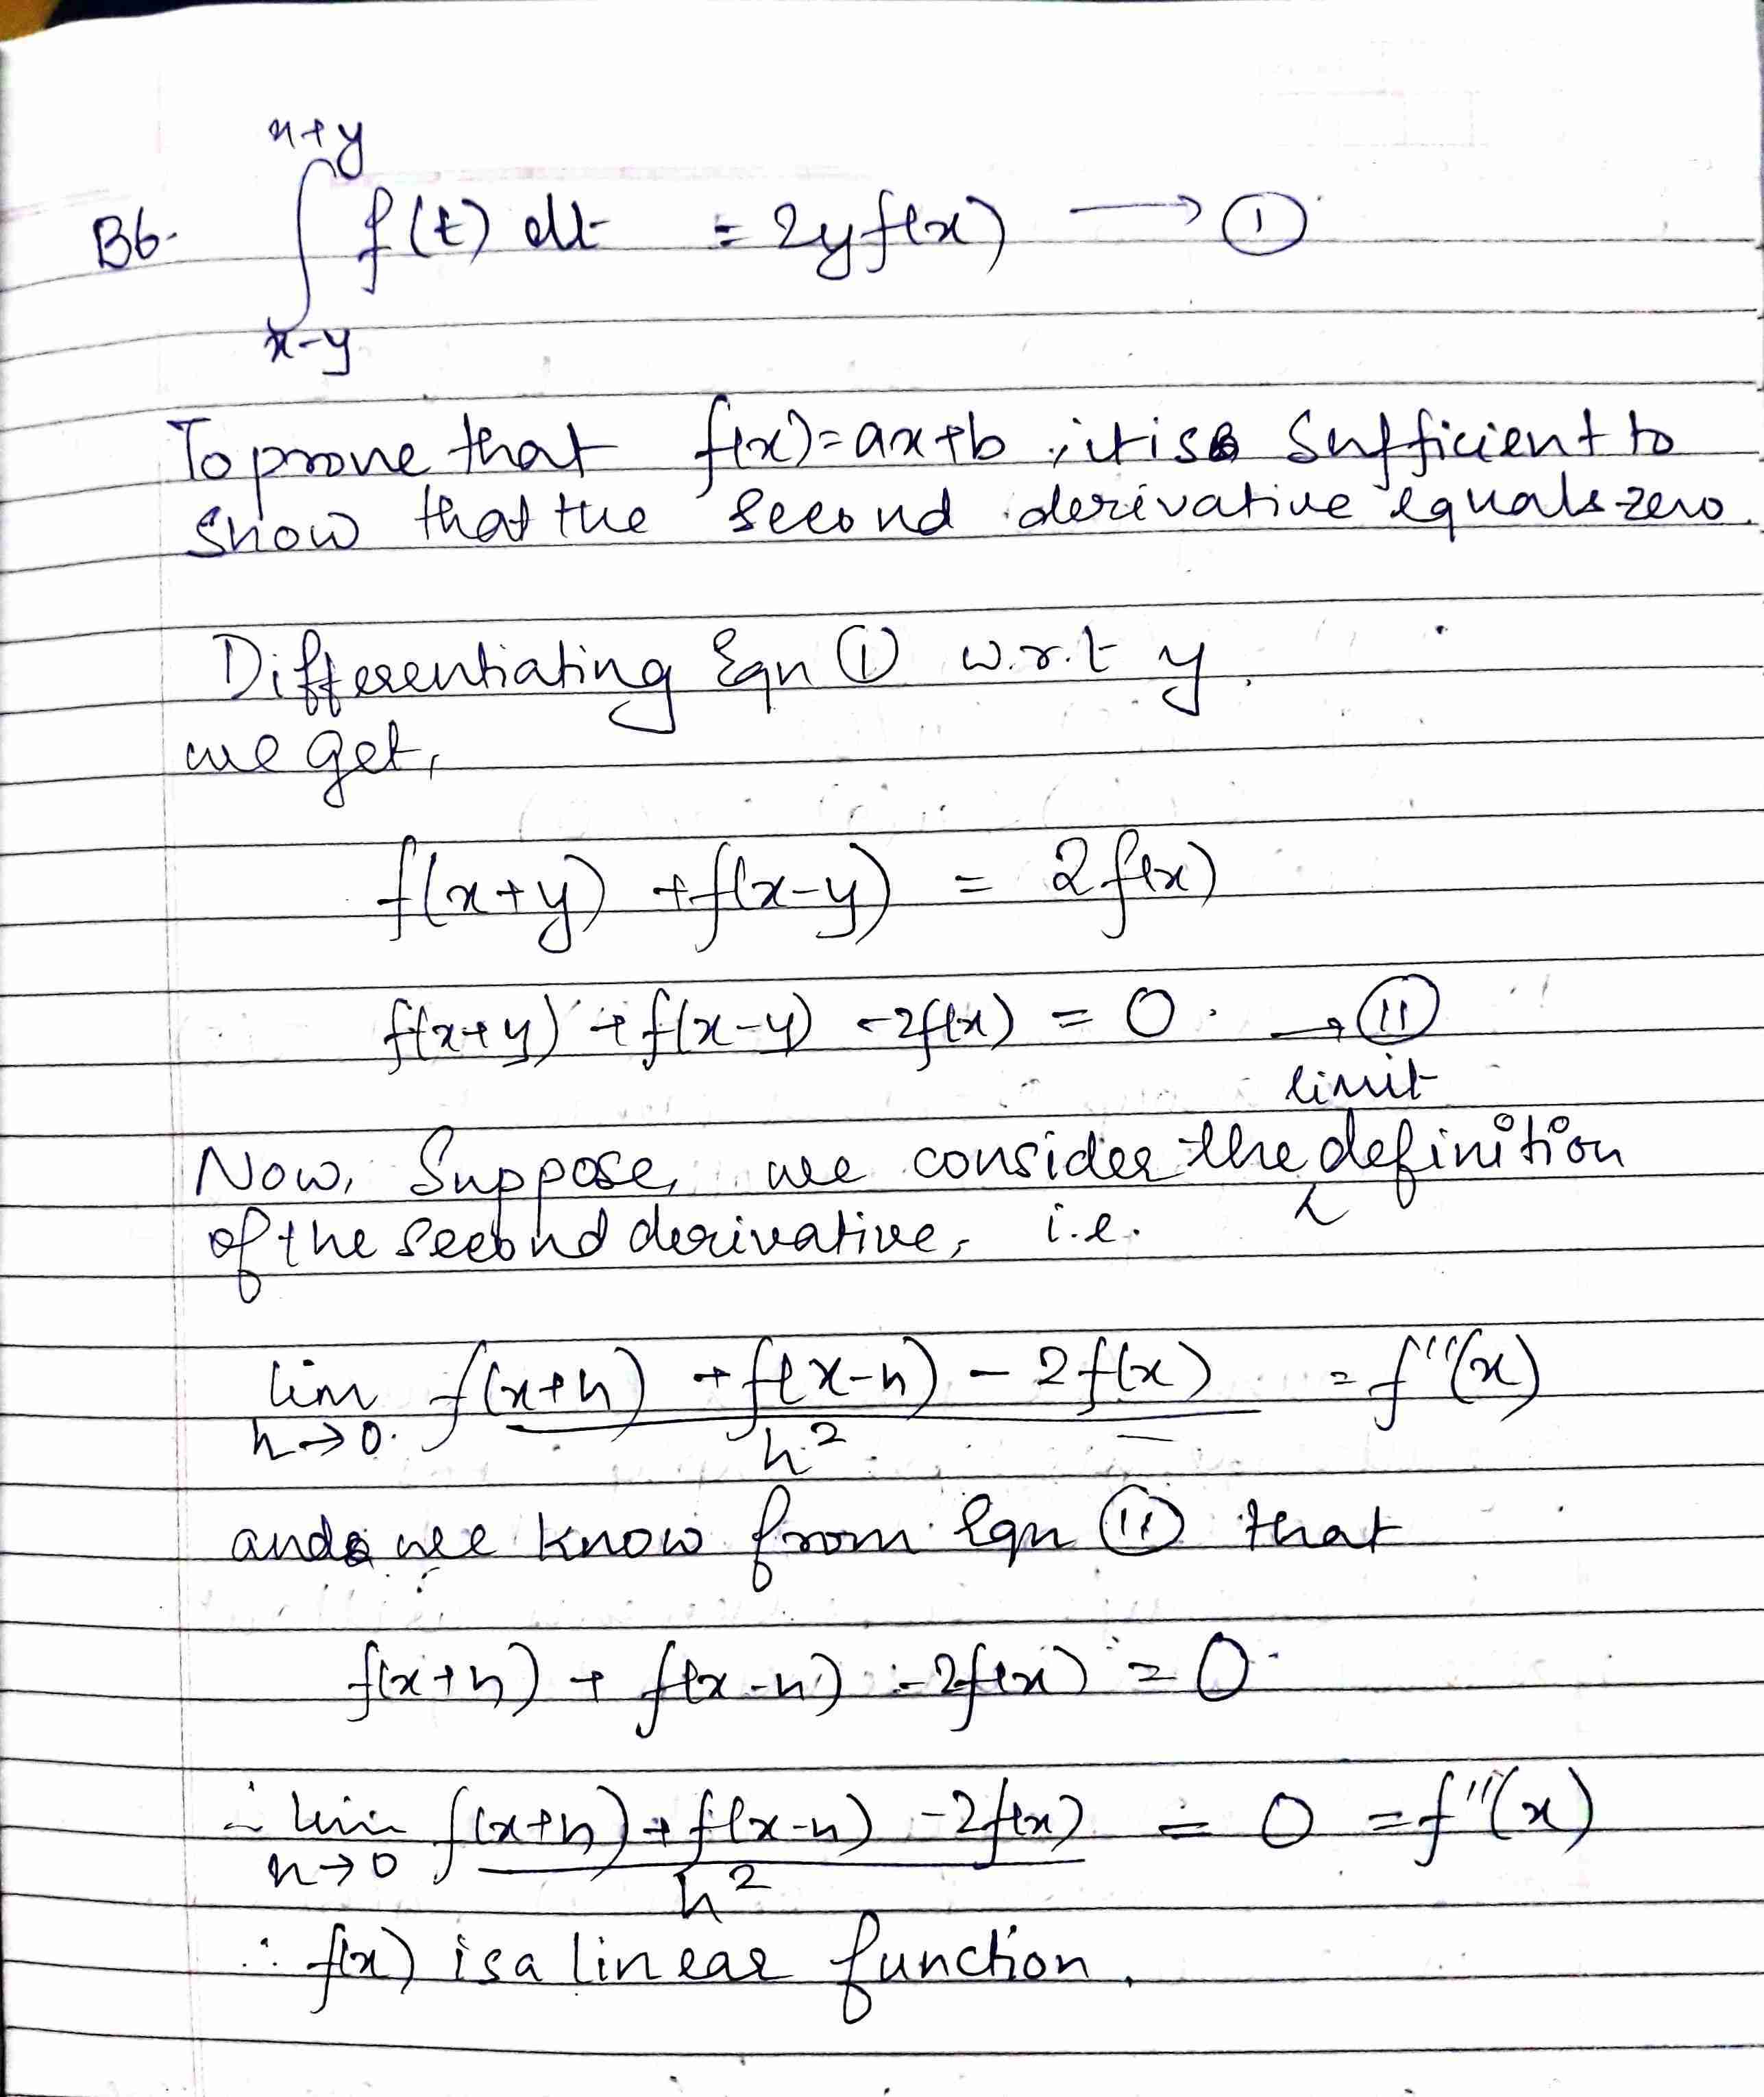 B6. ∫_{x-y}^{x+y} f(t) dt = 2y f(x) → ①
To prove that f(x)=ax+b, it is sufficient to
show that the second derivative equals zero.
Differentiating Eqn ① w.r.t y.
we get,
f(x+y) + f(x-y) = 2f(x)
f(x+y) + f(x-y) - 2f(x) = 0. → ⑪
limit
Now, Suppose, we consider the definition
of the second derivative, i.e.
lim_{h→0} (f(x+h) + f(x-h) - 2f(x))/h² = f''(x)
and we know from Eqn ⑪ that
f(x+h) + f(x-h) - 2f(x) = 0.
∴ lim_{h→0} (f(x+h) + f(x-h) - 2f(x))/h² = 0 = f''(x)
∴ f(x) is a linear function.